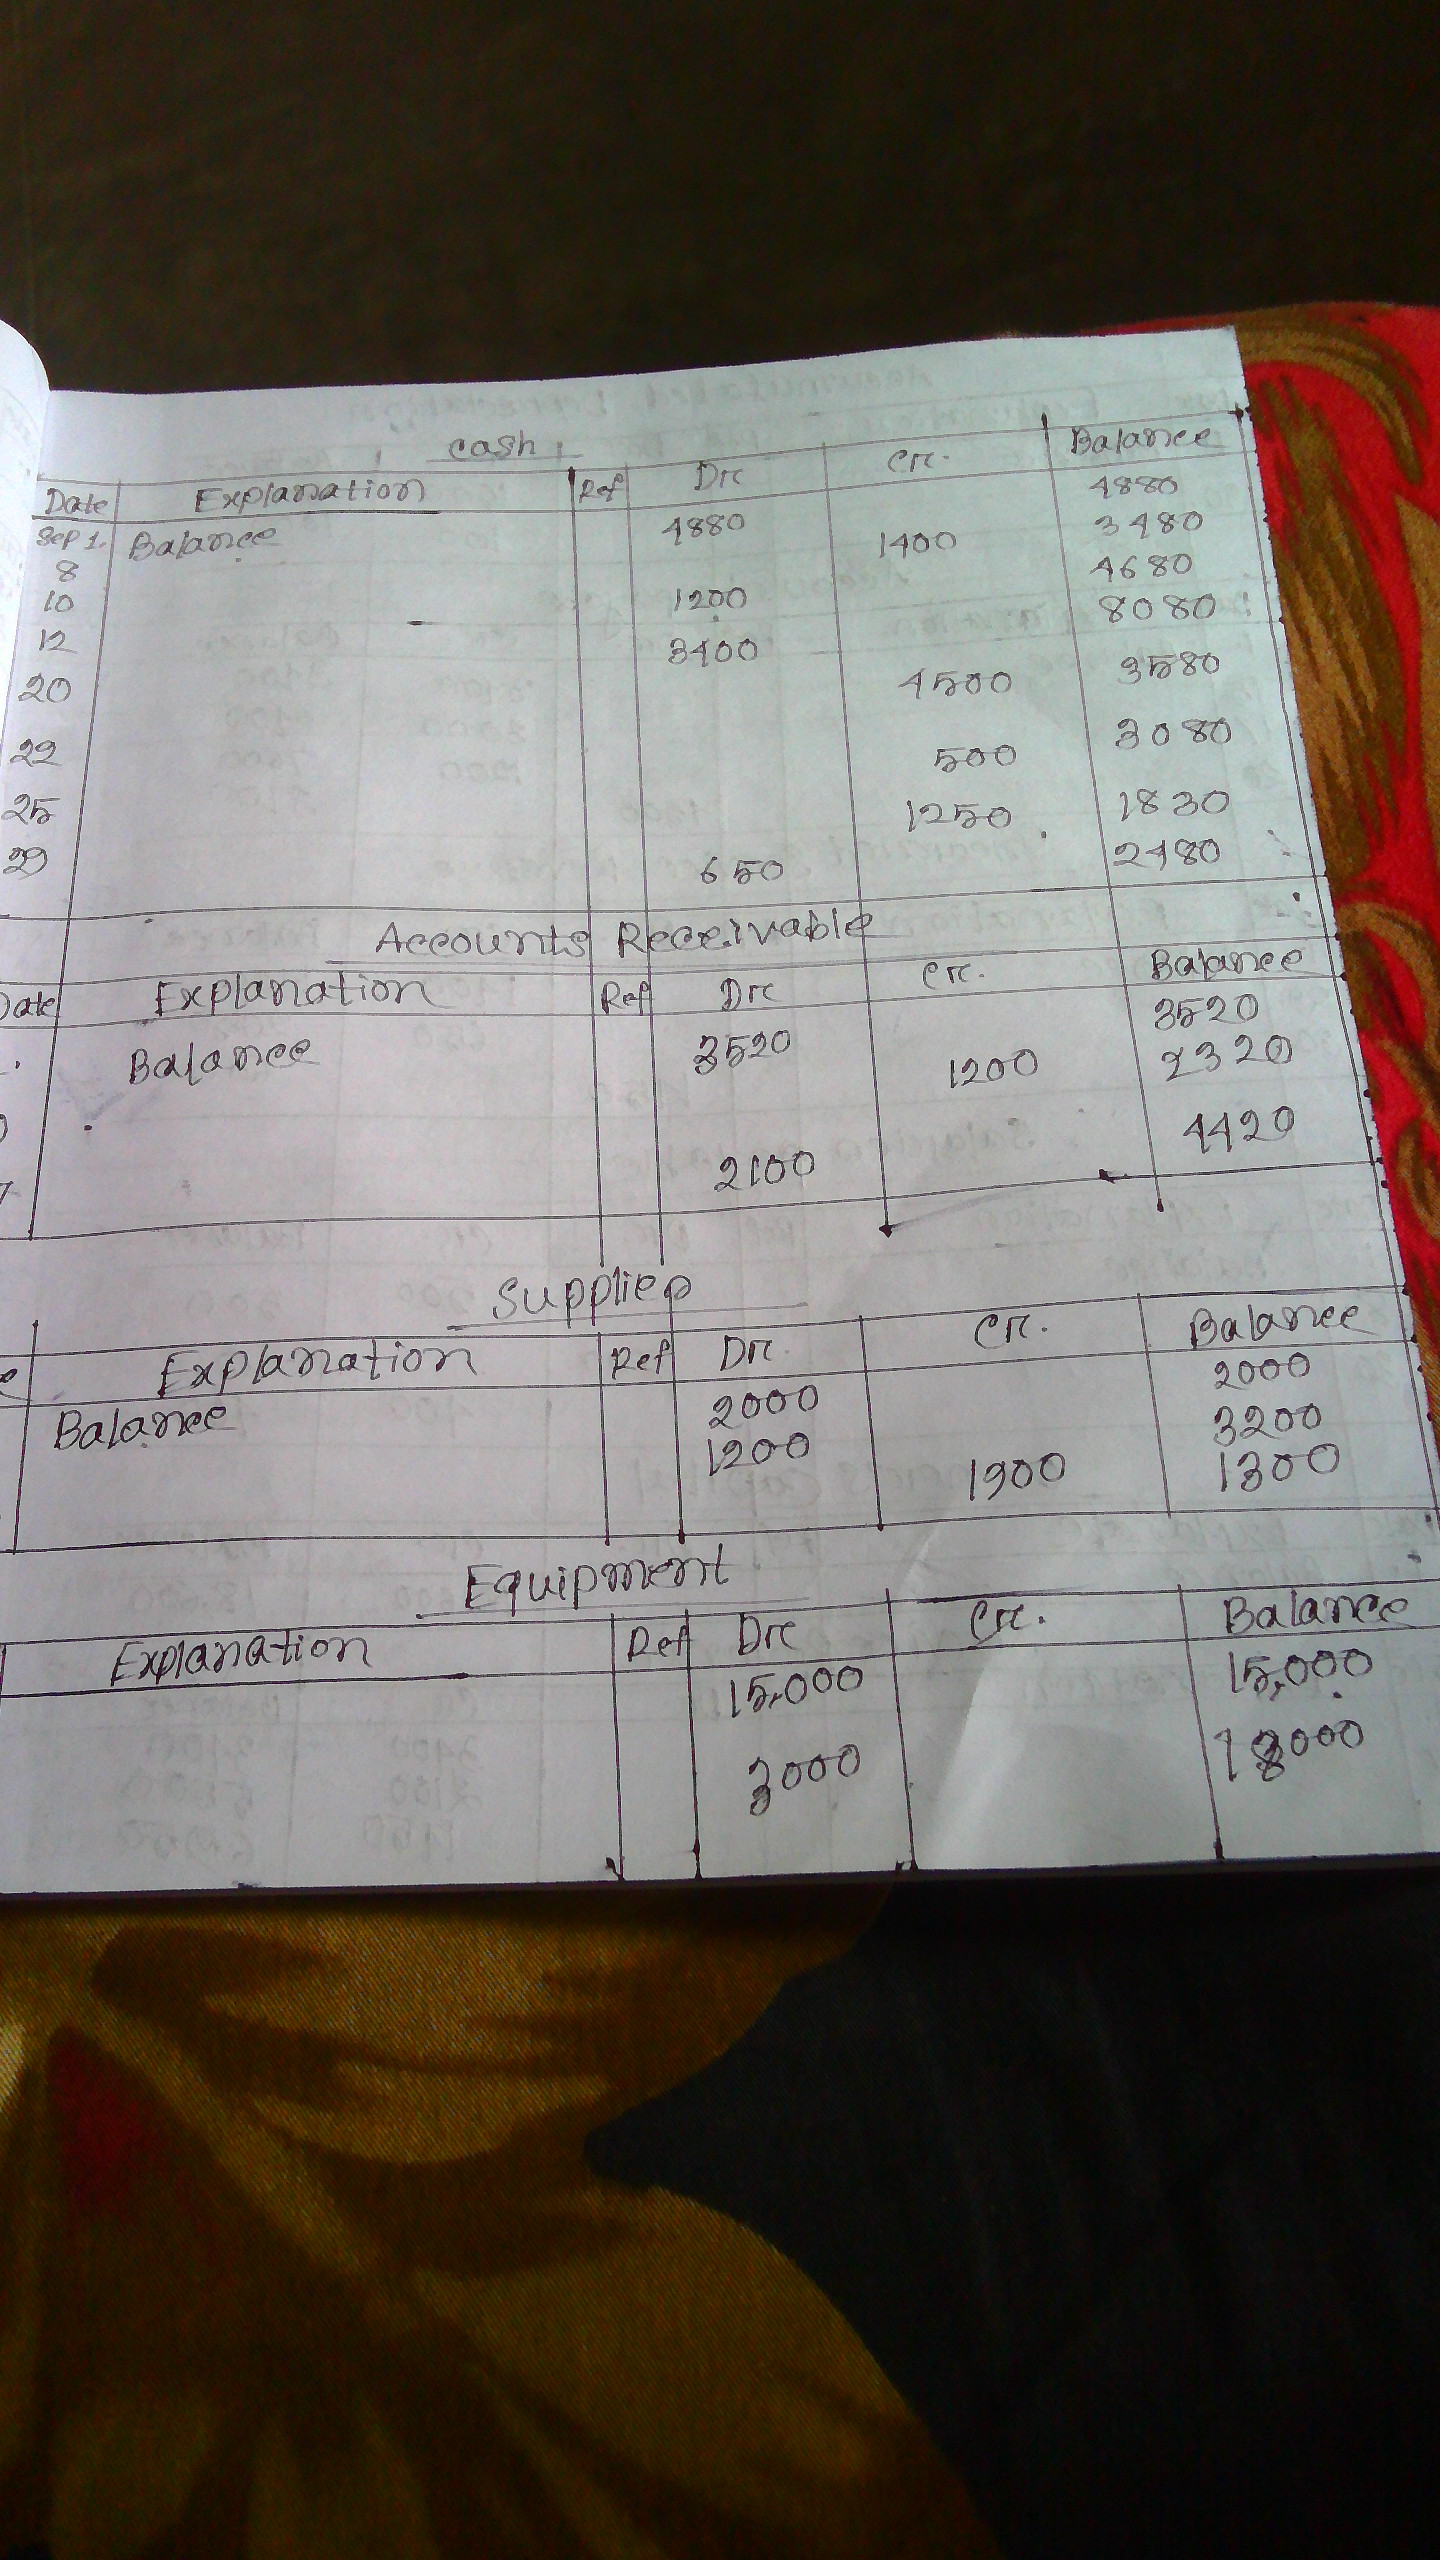 Cash
Date Explanation Ref Dr Cr. Balance
Sep 1. Balance 4880 4880
8 1400 3480
10 1200 4680
12 3400 8080
20 4500 3580
22 500 3080
25 1250 1830
29 650 2480
Accounts Receivable
Date Explanation Ref Dr Cr. Balance
Balance 3520 3520
1200 2320
2100 4420
Supplies
Explanation Ref Dr. Cr. Balance
Balance 2000 2000
1200 3200
1900 1300
Equipment
Explanation Ref Dr Cr. Balance
15,000 15,000
3000 18000